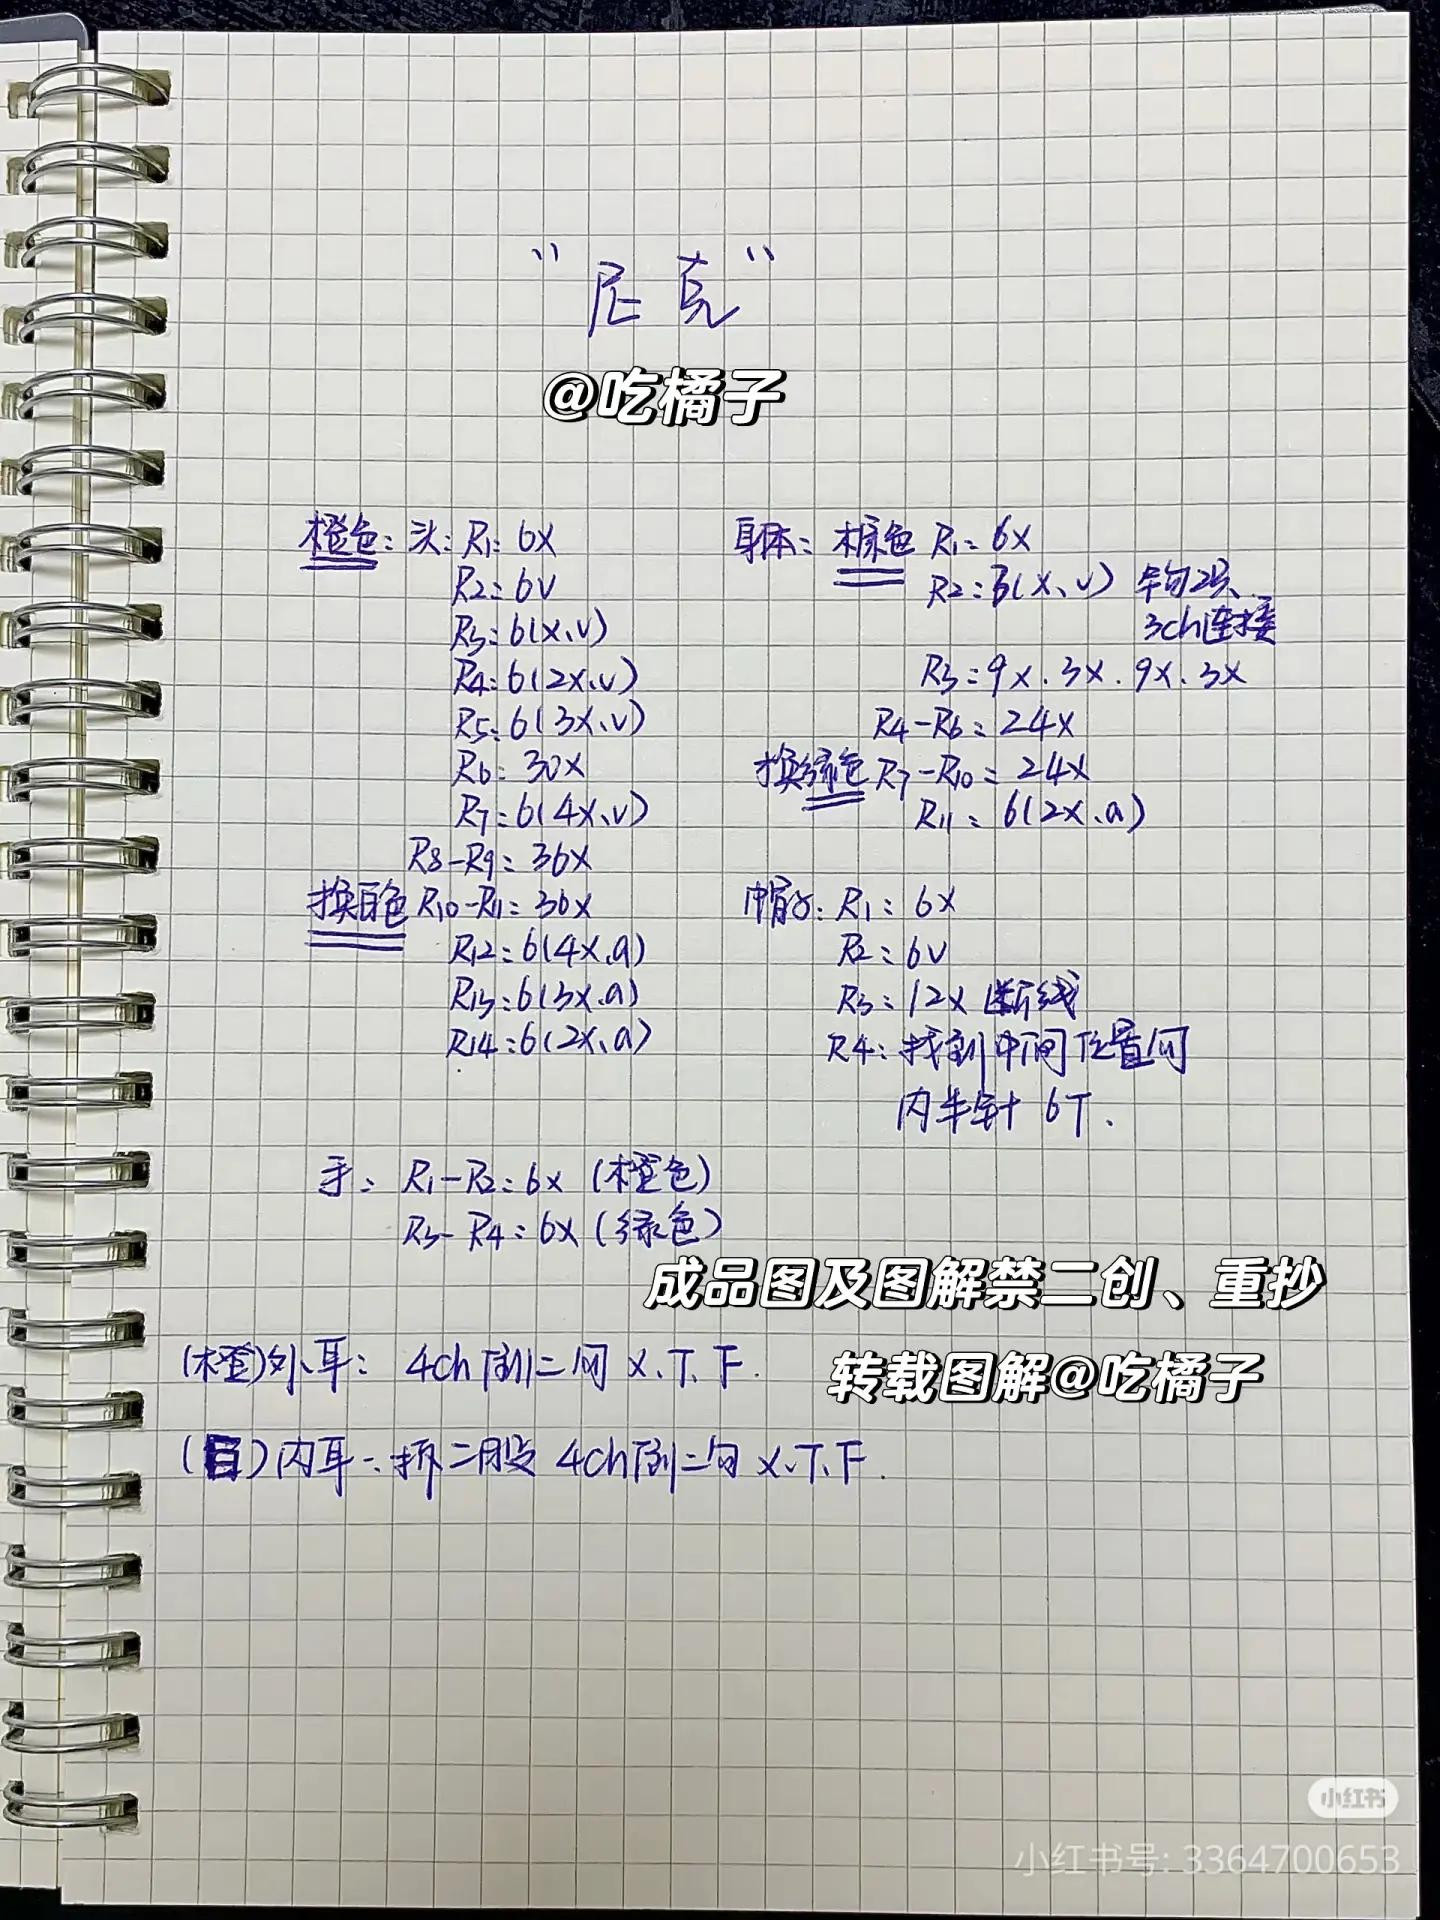 “尼克”
@吃橘子
橙色：头：R1：6X
R2：6V
R3：6(X、V)
R4：6(2X、V)
R5：6(3X、V)
R6：30X
R7：6(4X、V)
R8-R9：36X
换白色 R10-R11：36X
R12：6(4X、A)
R13：6(3X、A)
R14：6(2X、A)
身体：棕色 R1：6X
R2：3(X、V)
3ch连接
R3：9X．3X．9X．3X
R4-R6：24X
换绿色 R7-R10：24X
R11：6(2X、A)
帽子：R1：6X
R2：6V
R3：12X 断线
R4：找到中间位置问
内半针 6T．
手：R1-R2：6X (橙色)
R3-R4：6X (绿色)
成品图及图解禁二创、重抄
转载图解@吃橘子
(橙)外耳：4ch 倒二问 X、T、F．
(白)内耳：拆二股 4ch倒二勾 X、T、F．
小红书
小红书号: 3364700653